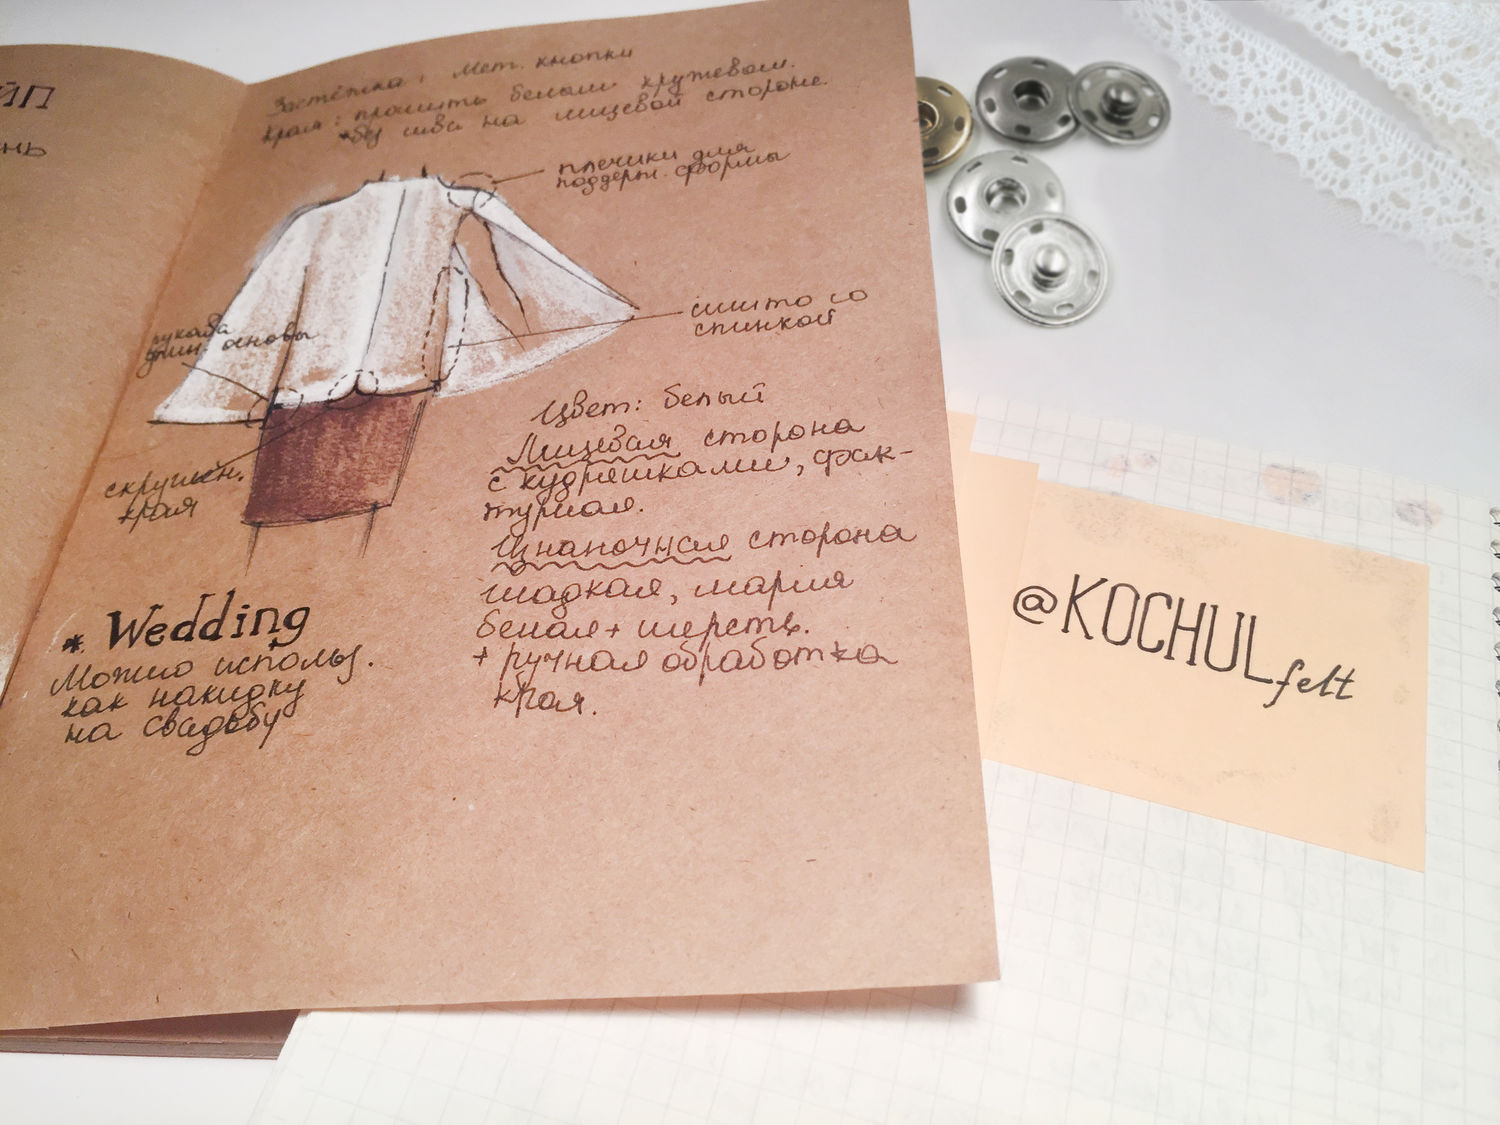 ЙП
НЬ
Застёжка: Мет. кнопки
Края: прошить белым кружевом.
шва на лицевой стороне.
плечики для
поддерж. формы
сшито со
спинкой
рукава
длин. основы
скруглён.
края
Цвет: белый
Лицевая сторона
с кудряшками, фак-
турная.
Изнаночная сторона
гладкая, марля
белая + шерсть.
+ ручная обработка
края.
* Wedding
Можно использ.
как накидку
на свадьбу
@KOCHULfelt